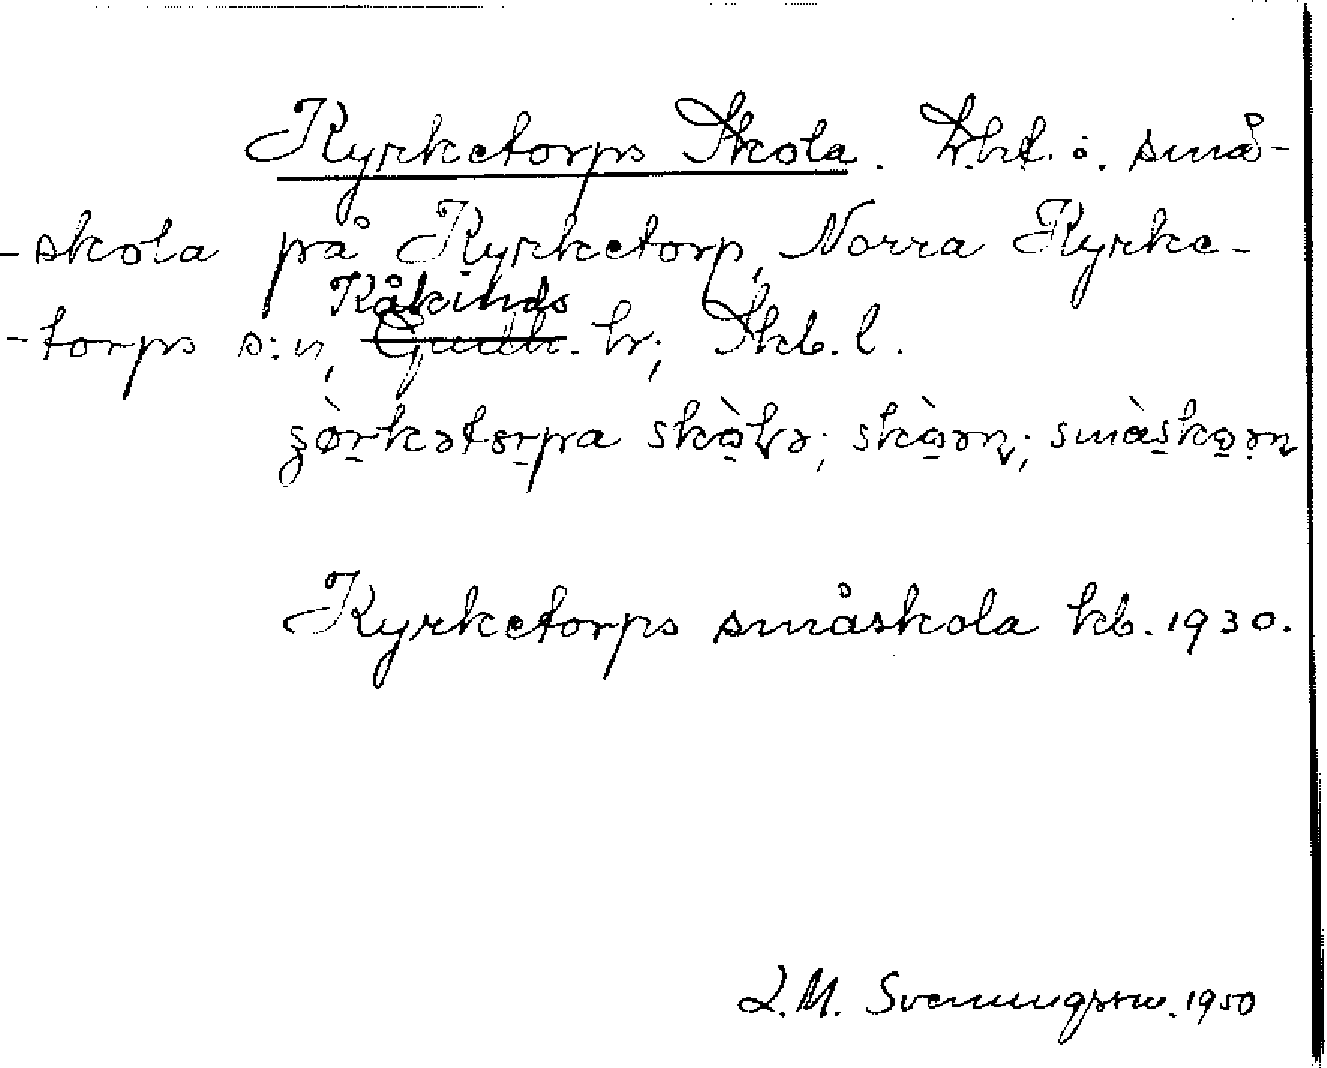 Kyrketorps Skola. Kbt. o. små-
-skola på Kyrketorp, Norra Kyrke-
Kåkinds
-torps s:n, Gudh. hr; Skb. l.
ʒò̱rkətø̱rpa skò̱ɫə; skò̱əɳ; smàsko̱əɳ
Kyrketorps småskola kb. 1930.
L.M. Svenungsson. 1950